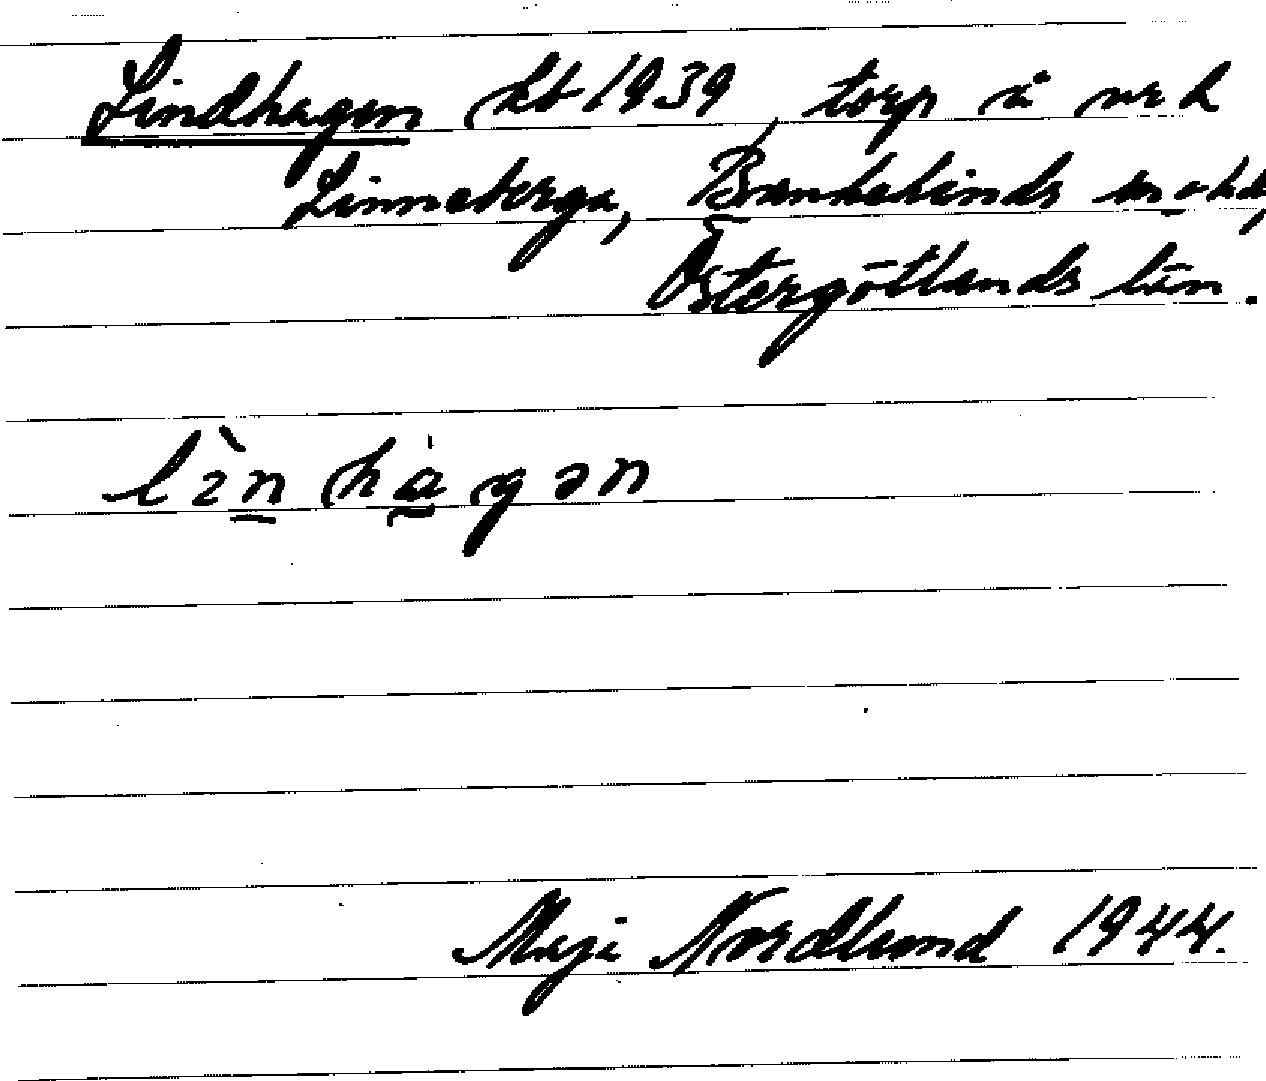 Lindhagen kb 1939, torp å urk
Linneberga, Bankekinds sn o hd,
Östergötlands län.
lìn hàgən
Maja Nordlund 1944.